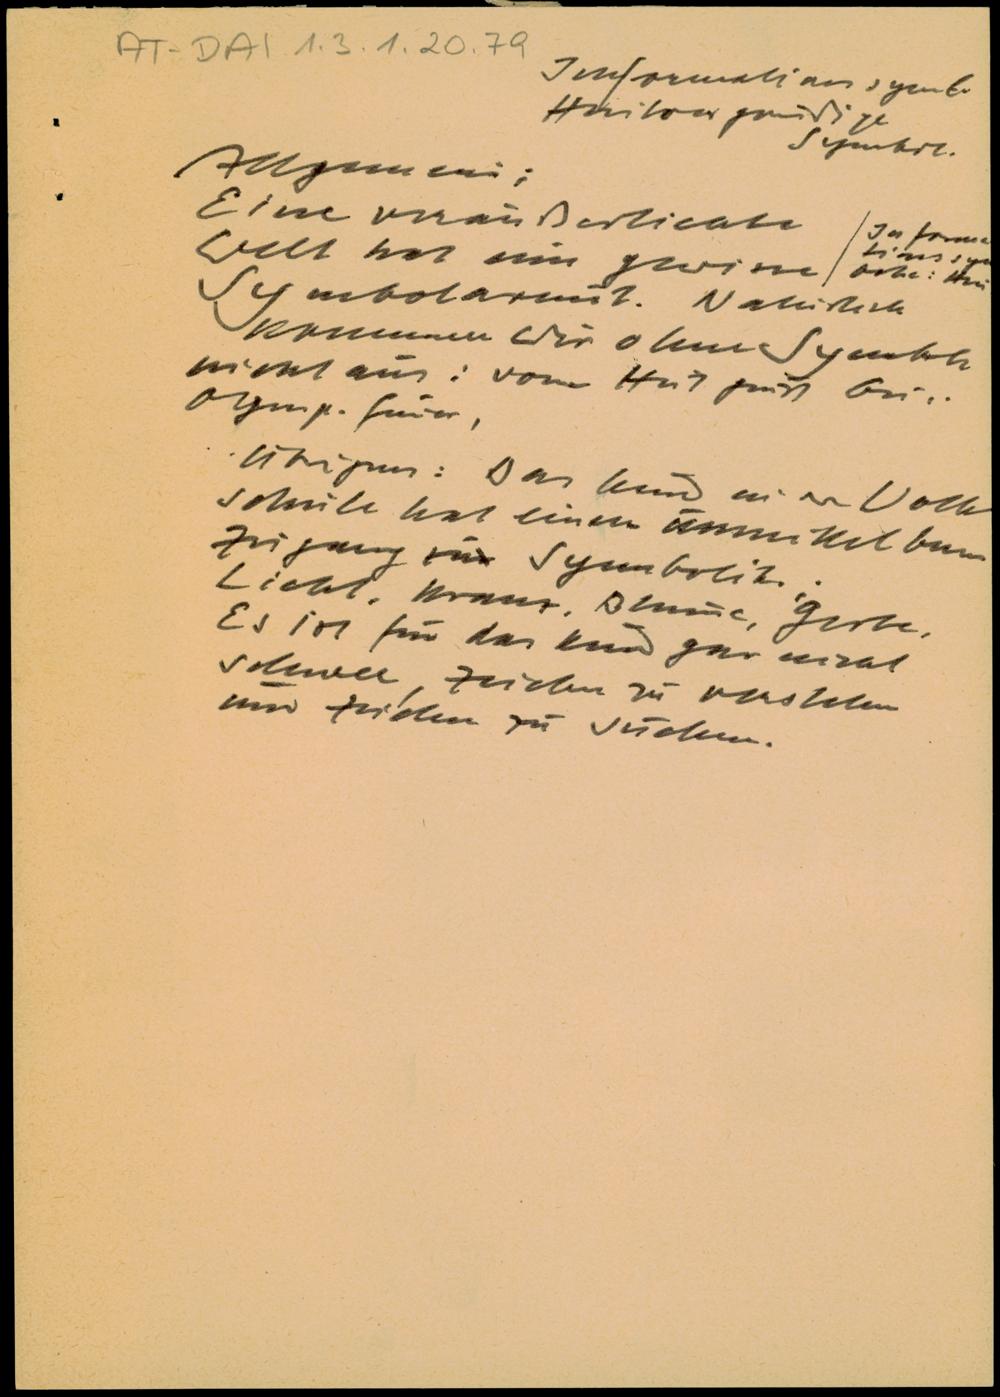 AT-DAI 1.3.1.20.79
Informationssymb
Hintergründige
Symbole.
Allgemein:
Eine veräußerlichte
Welt hat eine gewisse
Informa
tions sym
bole:
Symbolarmut. Natürlich
kommen wir ohne Symbole
nicht aus: vom Hut gruß bis..
Olymp. feuer,
Übrigens: Das Kind in der Volks
schule hat einen unmittelbaren
Zugang zur Symbolik.
Licht, Kranz, Blume, Gerbe.
Es ist für das Kind gar nicht
schwer, Zeichen zu verstehen
und Zeichen zu suchen.